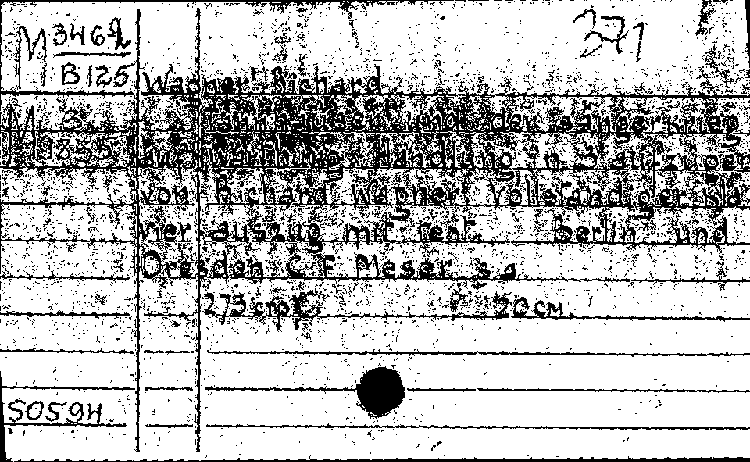 371
M 346
B125
Wagner Richard
Tannhäuser und der Sängerkrieg
auf Wartburg. Handlung in 3 aufzügen
von Richard Wagner Vollständiger Kla
vier-auszug mit text. Berlin und
Dresden C F Meser s a
275 20 см.
50594